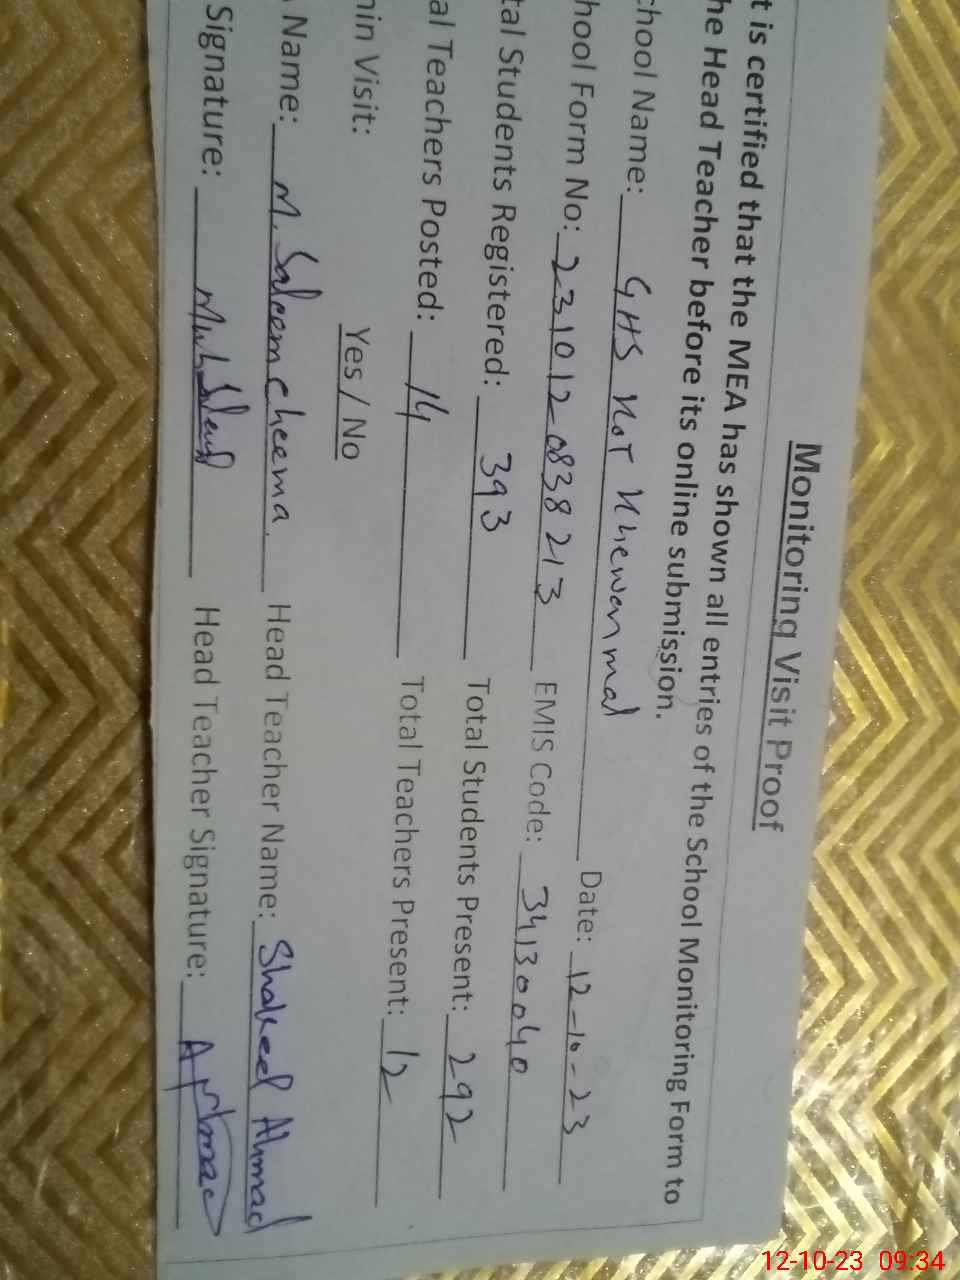 Monitoring Visit Proof
t is certified that the MEA has shown all entries of the School Monitoring Form to
he Head Teacher before its online submission.
chool Name: GHS KOT Khewanmal Date: 12-10-23
hool Form No: 2310120838213 EMIS Code: 34130040
tal Students Registered: 393 Total Students Present: 292
al Teachers Posted: 14 Total Teachers Present: 12
nin Visit: Yes / No
Name: M. Saleem Cheema. Head Teacher Name: Shakeel Ahmad
Signature: Head Teacher Signature:
12-10-23 09:34